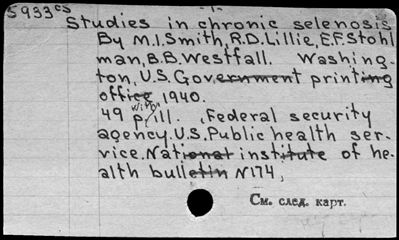 5933cs
Studies in chronic selenosis
By M.I.Smith, R.D.Lillie, E.F.Stohl
man, B.B.Westfall. Washing-
ton, U.S.Government printing
office 1940.
49 p. with ill. Federal security
agency. U.S.Public health ser-
vice. National institute of he-
alth bulletin N174,
См. след. карт.